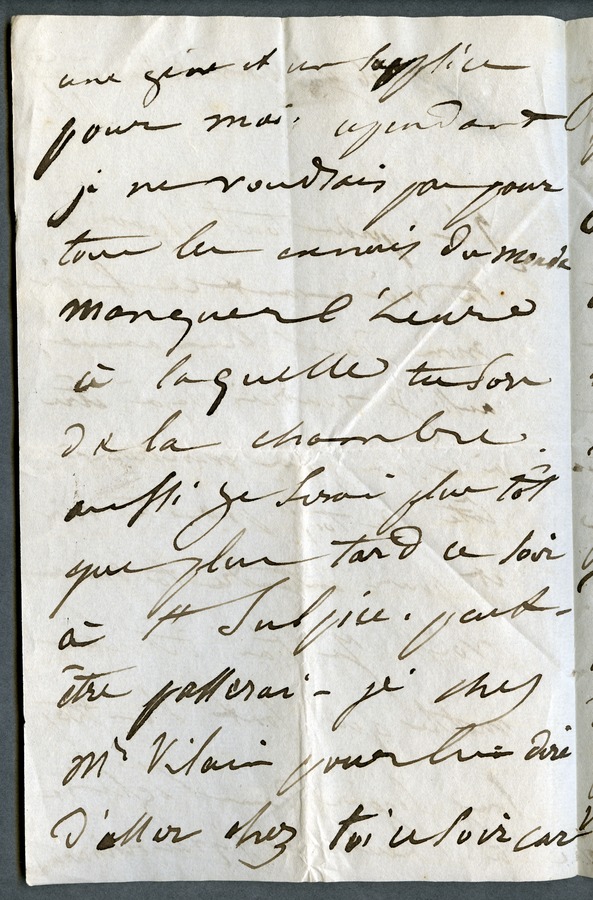 une gêne et un supplice
pour moi. cependant
je ne voudrais pas pour
tous les ennuis du monde
manquer l'heure
à laquelle tu sors
de la chambre.
aussi je serai plus tôt
que plus tard ce soir
à St Sulpice. peut-
être passerai-je chez
Mr Vilain pour lui dire
d'aller chez toi ce soir car